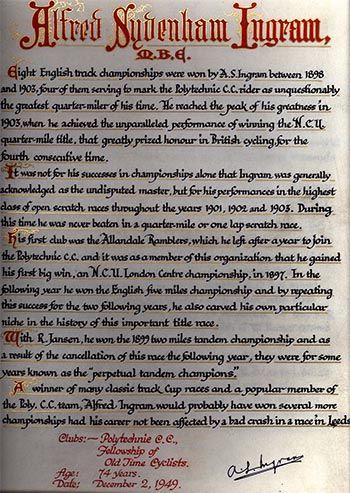 Alfred Sydenham Ingram,
M.B.E.
Eight English track championships were won by A.S. Ingram between 1898
and 1903, four of them serving to mark the Polytechnic C.C. rider as unquestionably
the greatest quarter-miler of his time. He reached the peak of his greatness in
1903, when he achieved the unparalleled performance of winning the N.C.U.
quarter-mile title, that greatly prized honour in British cycling, for the
fourth consecutive time.
It was not for his successes in championships alone that Ingram was generally
acknowledged as the undisputed master, but for his performances in the highest
class of open scratch races throughout the years 1901, 1902 and 1903. During
this time he was never beaten in a quarter-mile or one lap scratch race.
His first club was the Allandale Ramblers, which he left after a year to join
the Polytechnic C.C. and it was as a member of this organization that he gained
his first big win, an N.C.U. London Centre championship, in 1897. In the
following year he won the English five miles championship and by repeating
this success for the two following years, he also carved his own particular
niche in the history of this important title race.
With R. Jansen, he won the 1899 two miles tandem championship and as
a result of the cancellation of this race the following year, they were for some
years known as the "perpetual tandem champions."
A winner of many classic track Cup races and a popular member of
the Poly. C.C. team, Alfred Ingram would probably have won several more
championships had his career not been affected by a bad crash in a race in Leeds
Clubs:— Polytechnic C.C.,
Fellowship of
Old Time Cyclists.
Age: 74 years.
Date: December 2, 1949.
A. S. Ingram